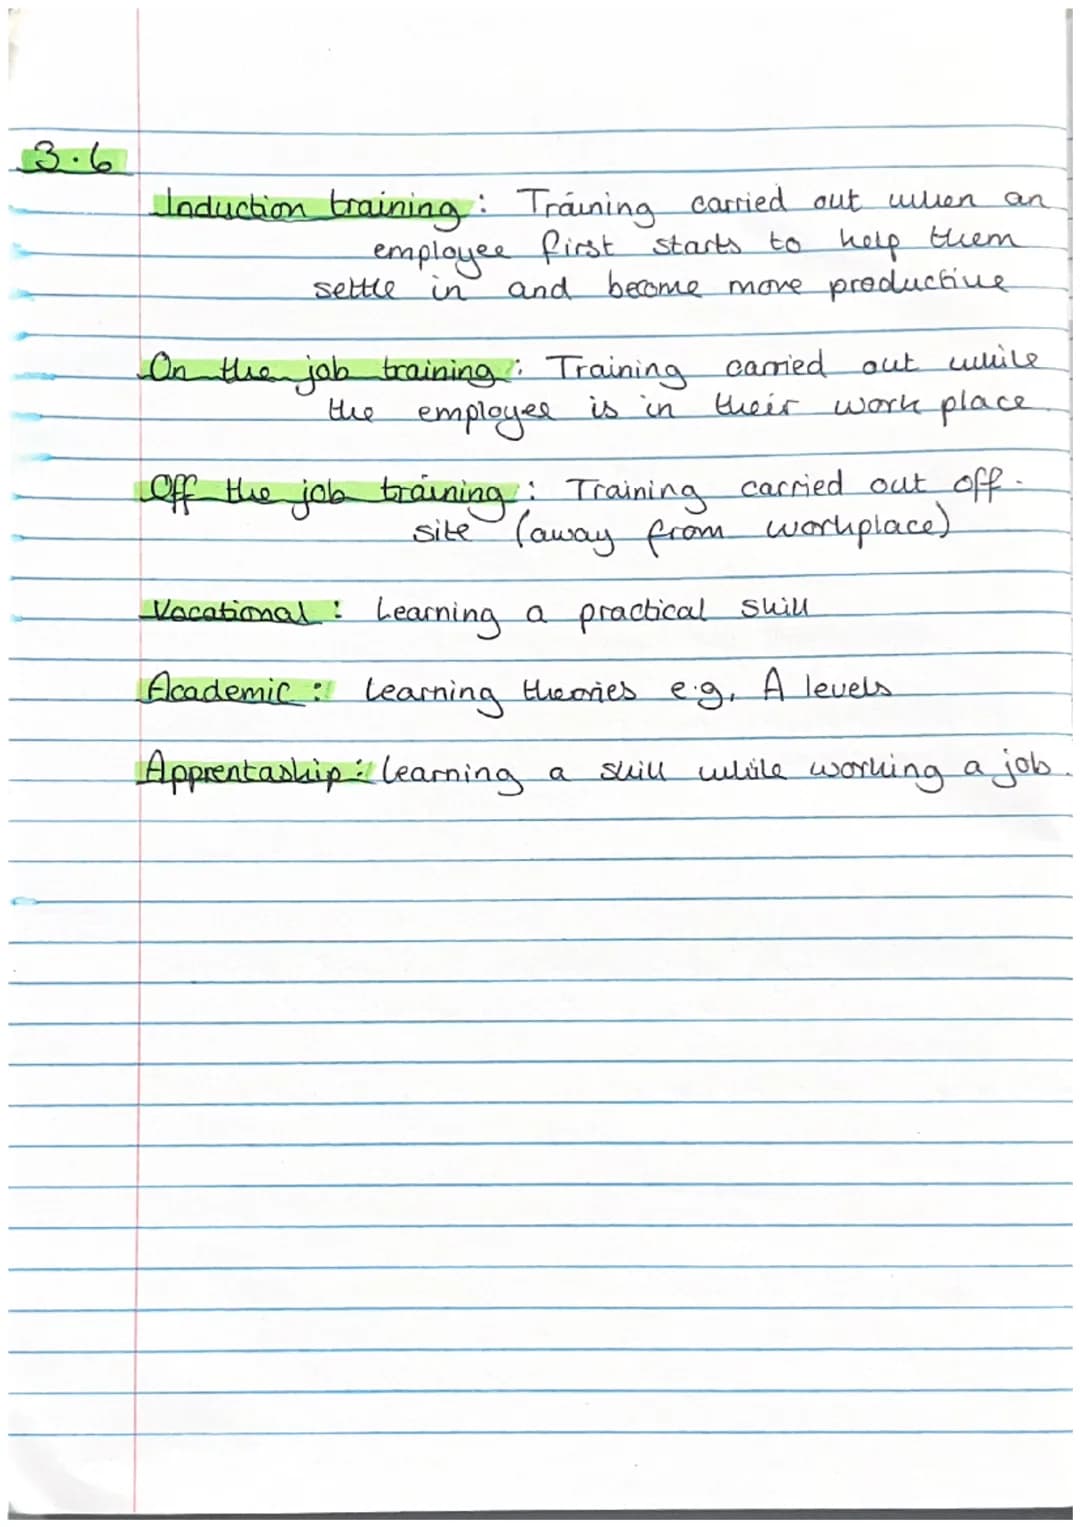 3.6
Induction training: Training carried out when an
employee first starts to help them
settle in and become more productive
On the job training: Training carried out while
the employee is in their work place
Off the job training: Training carried out off-
site (away from workplace)
Vocational: Learning a practical skill
Academic: Learning theories e.g. A levels
Apprentaship: Learning a skill while working a job.